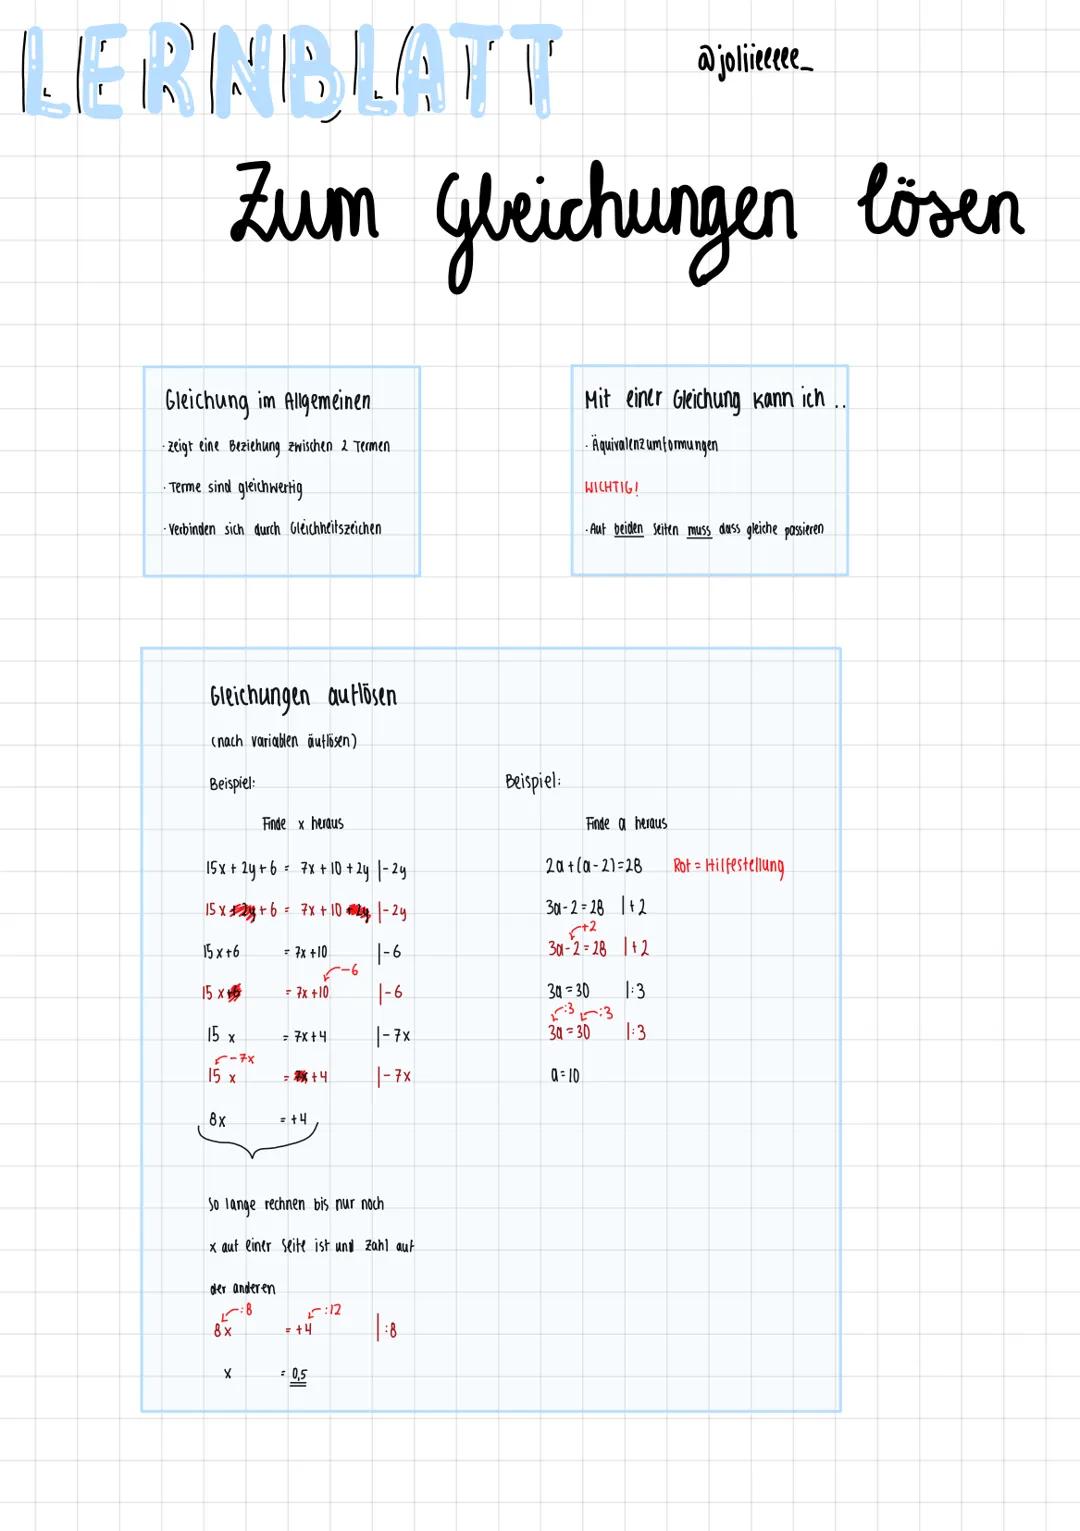 LERNBLATT
@joliieeeee_
Zum Gleichungen lösen
Gleichung im Allgemeinen
· zeigt eine Beziehung zwischen 2 Termen
· Terme sind gleichwertig
· Verbinden sich durch Gleichheitszeichen
Mit einer Gleichung kann ich ..
· Äquivalenzumformungen
WICHTIG!
· Auf beiden Seiten muss dass gleiche passieren
Gleichungen auflösen
(nach variablen äuflösen)
Beispiel:
Finde x heraus
15x + 2y + 6 = 7x + 10 + 2y |- 2y
15x + 2y + 6 = 7x + 10 + 2y |- 2y
15x+6 = 7x+10 |-6
-6
15x+6 = 7x+10 |-6
15 x = 7x+4 |-7x
-7x
15 x = 7x+4 |-7x
8x = +4
So lange rechnen bis nur noch
x auf einer Seite ist und Zahl auf
der anderen
:8 :12
8x = +4 |:8
x = 0,5
Beispiel:
Finde a heraus
2a+(a-2)=28 Rot = Hilfestellung
3a-2=28 |+2
+2
3a-2=28 |+2
3a=30 |:3
:3 :3
3a=30 |:3
a=10